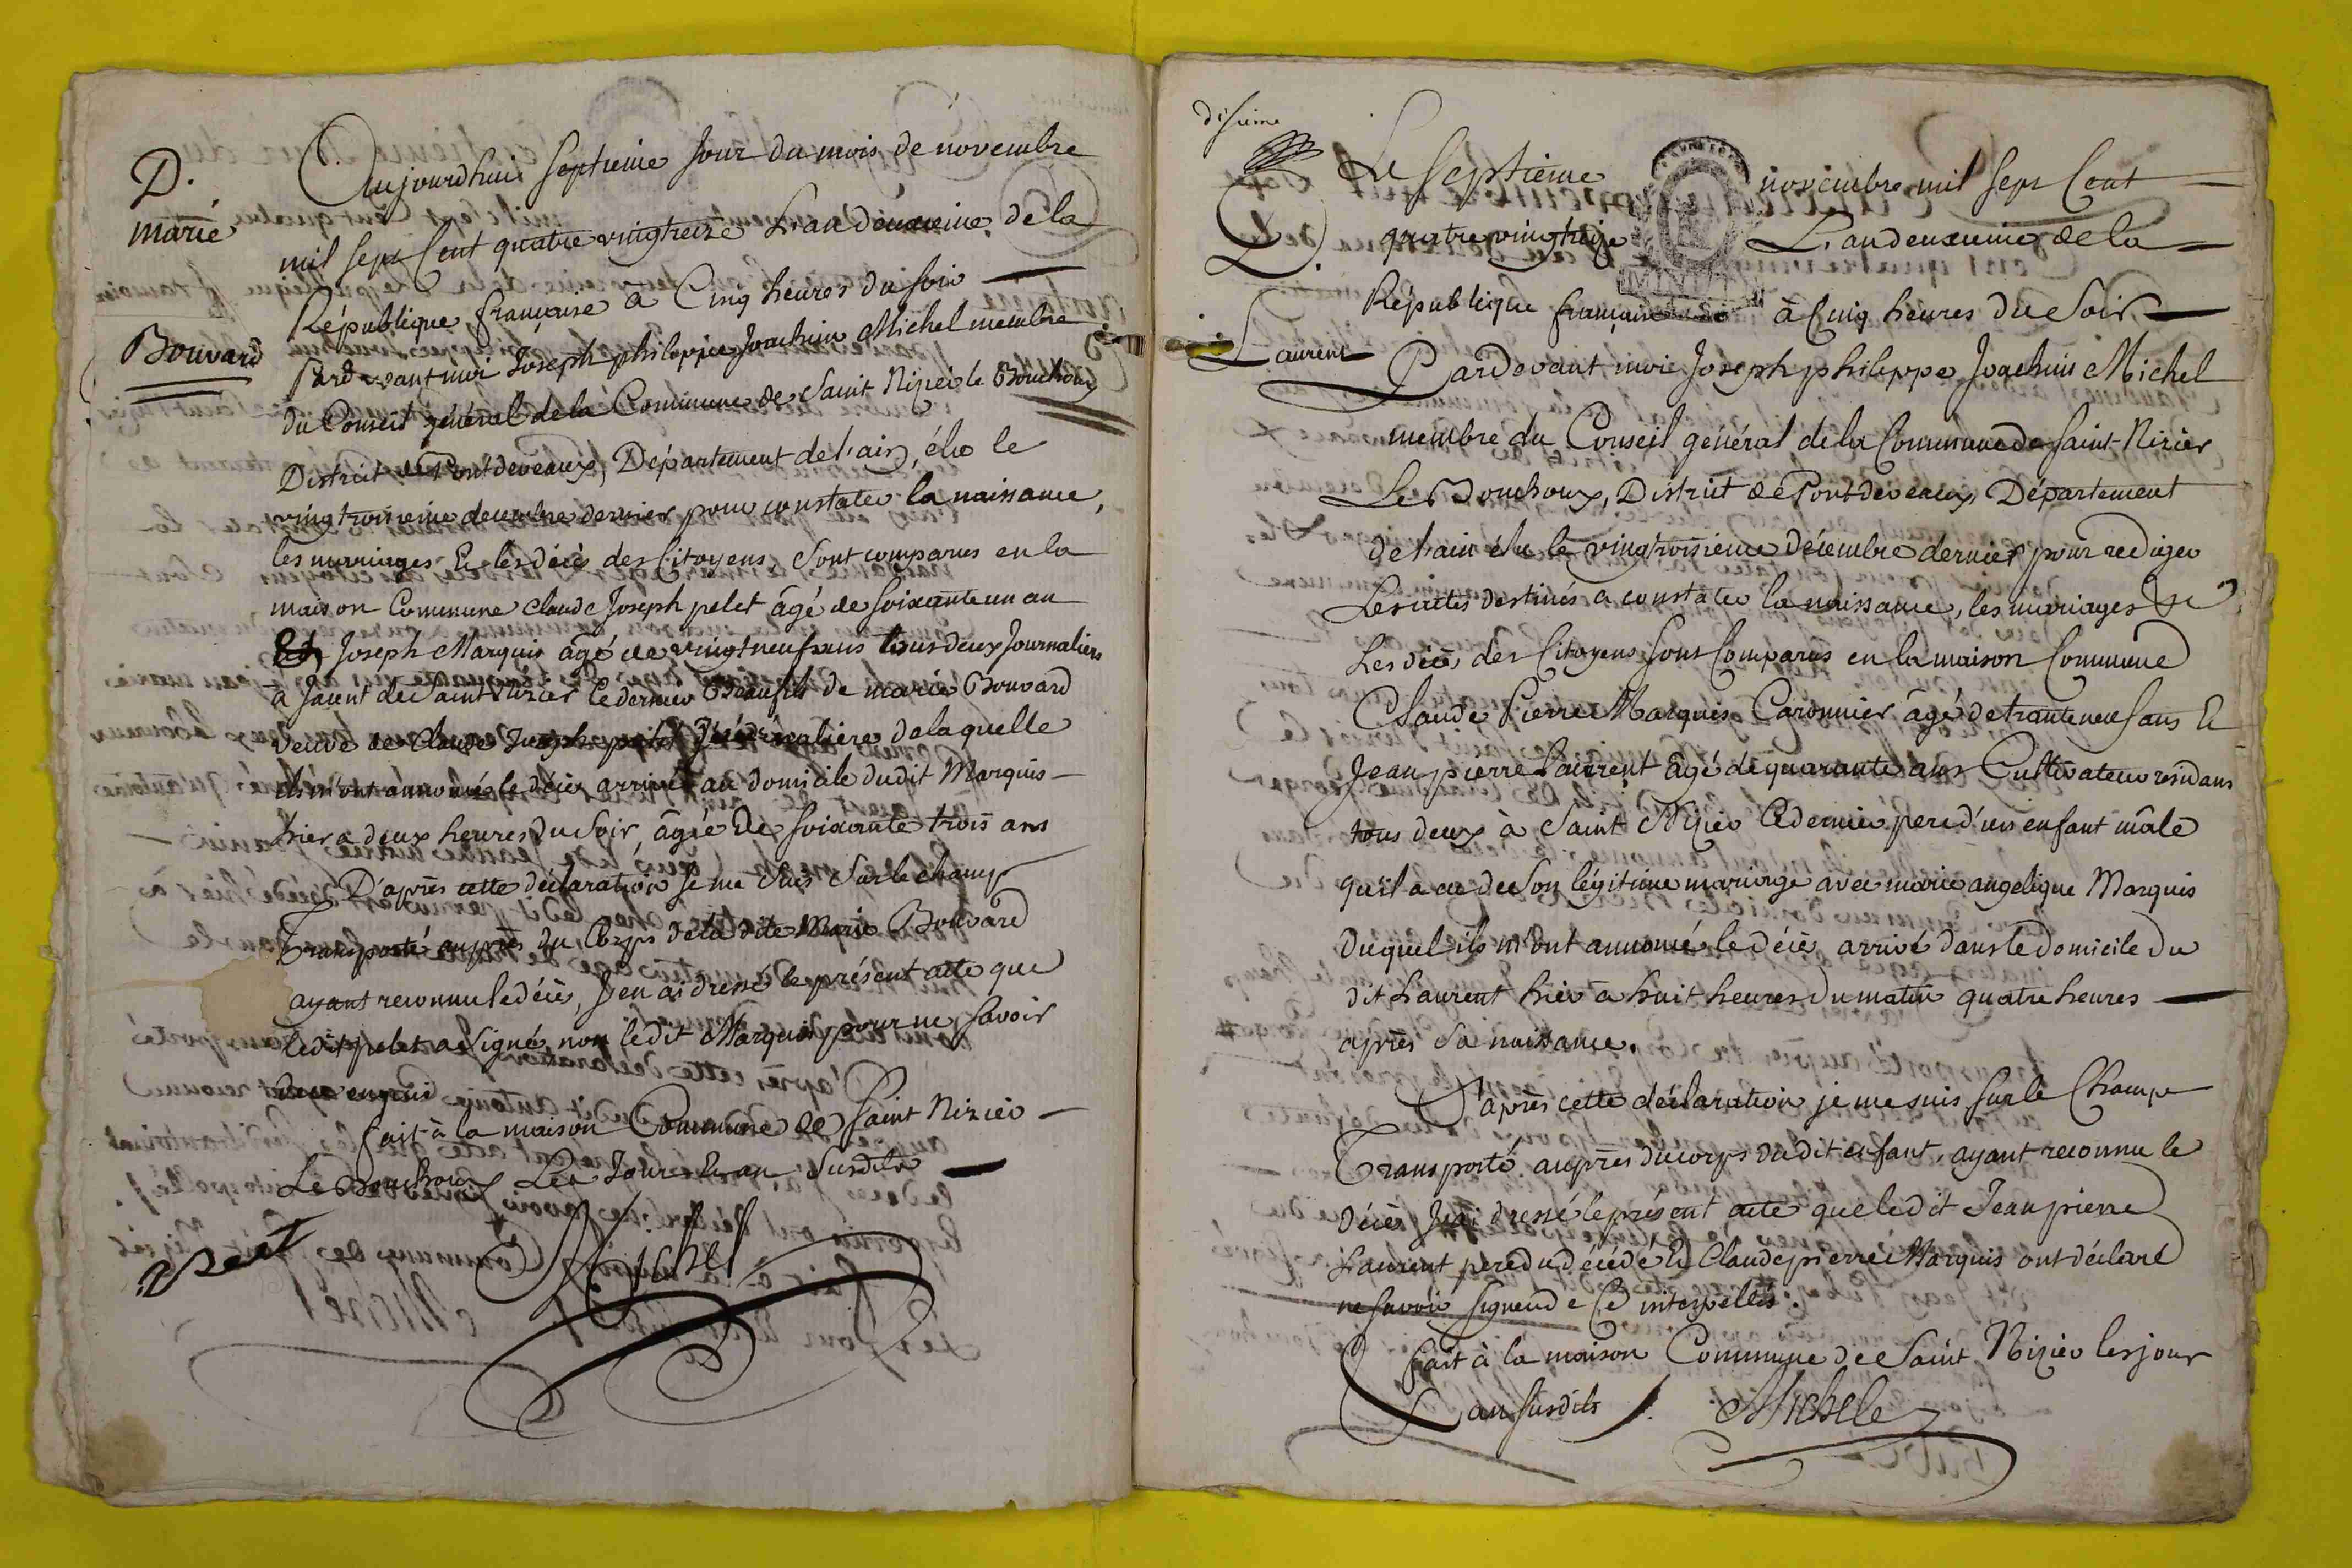 D.
marie
Bouvard
Aujourdhui septieme Jour du mois de novembre
mil sept Cent quatre vingtreize L'an deuxieme de la
République française à Cinq heures du soir
Pardevant moi Joseph philippe Joachim Michel membre
du Conseil général de la Commune de Saint Nizier le Bouchoux
District de Pontdevaux, Département de l'ain, élu le
vingtroisieme decembre dernier pour constater la naissance,
les mariages Et les décès des Citoyens, Sont comparus en la
maison Commune Claude Joseph pelet âgé de soixante un an
Et Joseph Marquis âgé de vingtneuf ans tous deux Journaliers
à Saint Nizier le dernier Beaufils de marie Bouvard
veuve de Claude Joseph delaquelle
ils m'ont annoncés le décès arrivé au domicile dudit Marquis
hier a deux heures du Soir, âgée De soixante trois ans
D'après cette déclaration Je me suis sur le champ
Transporté auprès du Corps de la dite Marie Bouvard
ayant reconnu le décès, J'en ai dressé le présent acte que
ledit pelet a signé, non ledit Marquis pour ne savoir
de ce enquis
fait à la maison Commune de Saint Nizier
Le Bouchoux Les Jour Et an susdits
Pelet
Michel
disieme
D.
Laurent
Le septieme novembre mil sept Cent
quatre vingtreize L'an deuxieme de la
République française à Cinq heures du Soir
Pardevant moi Joseph philippe Joachim Michel
membre du Conseil général de la Commune de Saint-Nizier
Le Bouchoux, District de Pontdevaux, Département
de l'ain élu le vingtroisieme décembre dernier pour rediger
Les actes destinés a constater la naissance, les mariages Et
Les décès des Citoyens sont Comparus en la maison Commune
Claude Pierre Marquis âgé de trante neuf ans Et
Jean pierre Laurent âgé de quarante ans Cultivateur residans
tous deux à Saint Nizier le dernier pere d'un enfant mâle
qu'il a eu de son légitime mariage avec marie angelique Marquis
duquel ils m'ont annoncé le décès arrivé dans le domicile du
dit Laurent hier à huit heures du matin quatre heures
après sa naissance.
D'après cette déclaration je me suis sur le Champ
Transporté auprès du corps dudit enfant, ayant reconnu le
décès J'ai dressé le présent acte que ledit Jean pierre
Laurent pere du décédé Et Claude pierre Marquis ont déclaré
ne savoir signer de Ce interpellés.
fait à la maison Commune de Saint Nizier les jour
Et an susdits
Michel